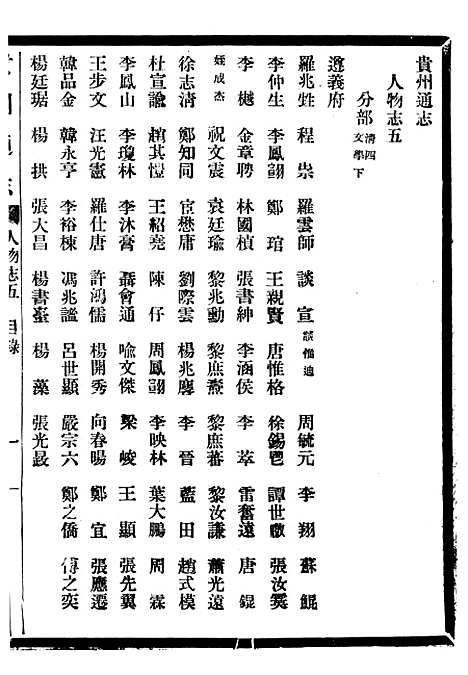 貴州通志
人物志五
分部 清四 文學下
遵義府
羅兆甡 程崇 羅雲師 談宣 談惟遠 周毓元 李翔 蘇鯤
李仲生 李鳳翩 鄭琯 王親賢 唐惟格 徐錫 譚世 張汝霙
李樾 金章聘 林國楨 張書紳 李涵侯 李萃 雷奮遠 唐錕
廷成杰 祝文震 袁廷瑜 黎兆勳 黎庶燾 黎庶蕃 黎汝謙 蕭光遠
徐志清 鄭知同 宦懋庸 劉際雲 楊兆麐 李晉 藍田 趙式模
杜宣諭 趙其愷 王紹堯 陳仔 周鳳翩 李映林 葉大鵬 周霖
李鳳山 李瓊林 李沐膏 聶會通 喩文傑 梁峻 王顯 張先翼
王步文 汪光憲 羅仕唐 許鴻儒 楊開秀 向春暘 鄭宜 張應遷
韓品金 韓永亨 李裕棟 馮兆謐 呂世顯 嚴宗六 鄭之僑 傅之奕
楊廷琚 楊拱 張大昌 楊書臺 楊藻 張光
人物志五 目錄 一